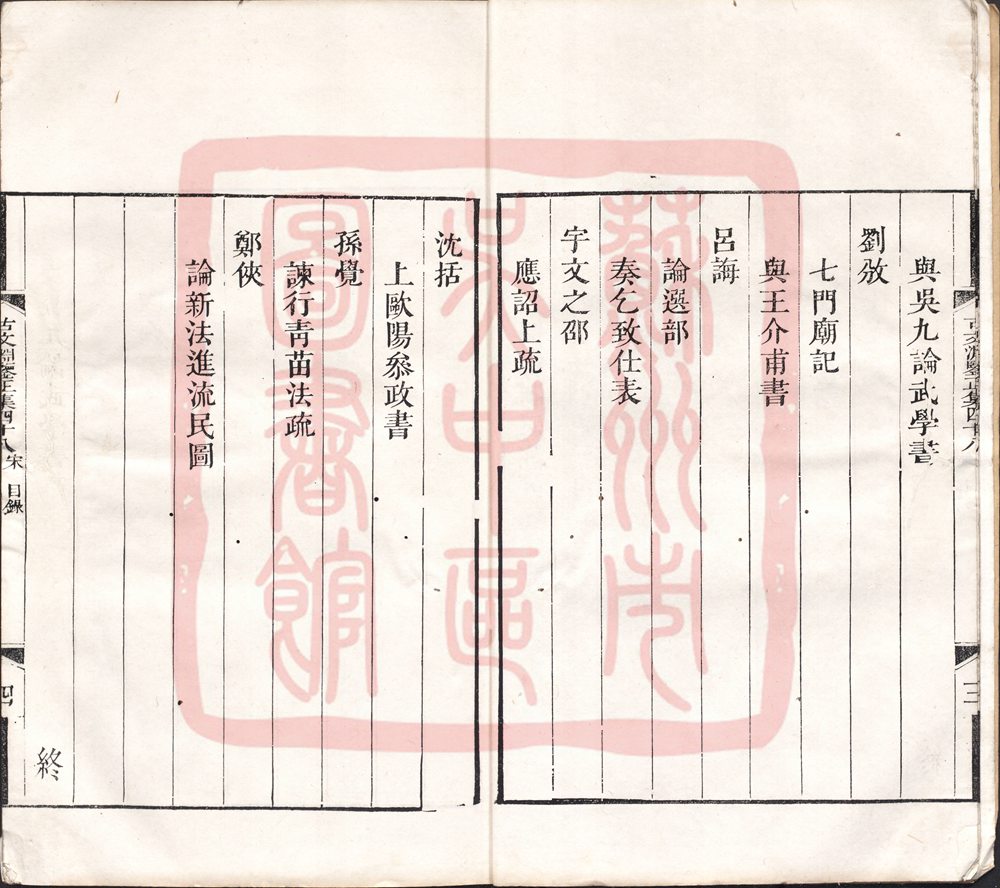 與吳九論武學書
劉攽
七門廟記
與王介甫書
呂誨
論選部
奏乞致仕表
宇文之邵
應詔上疏
沈括
上歐陽叅政書
孫覺
諫行青苗法疏
鄭俠
論新法進流民圖
終
古文淵鑒正集四十八 宋 目錄
四
古文淵鑒正集四十八
三
蘇州市
吳中區
圖書館